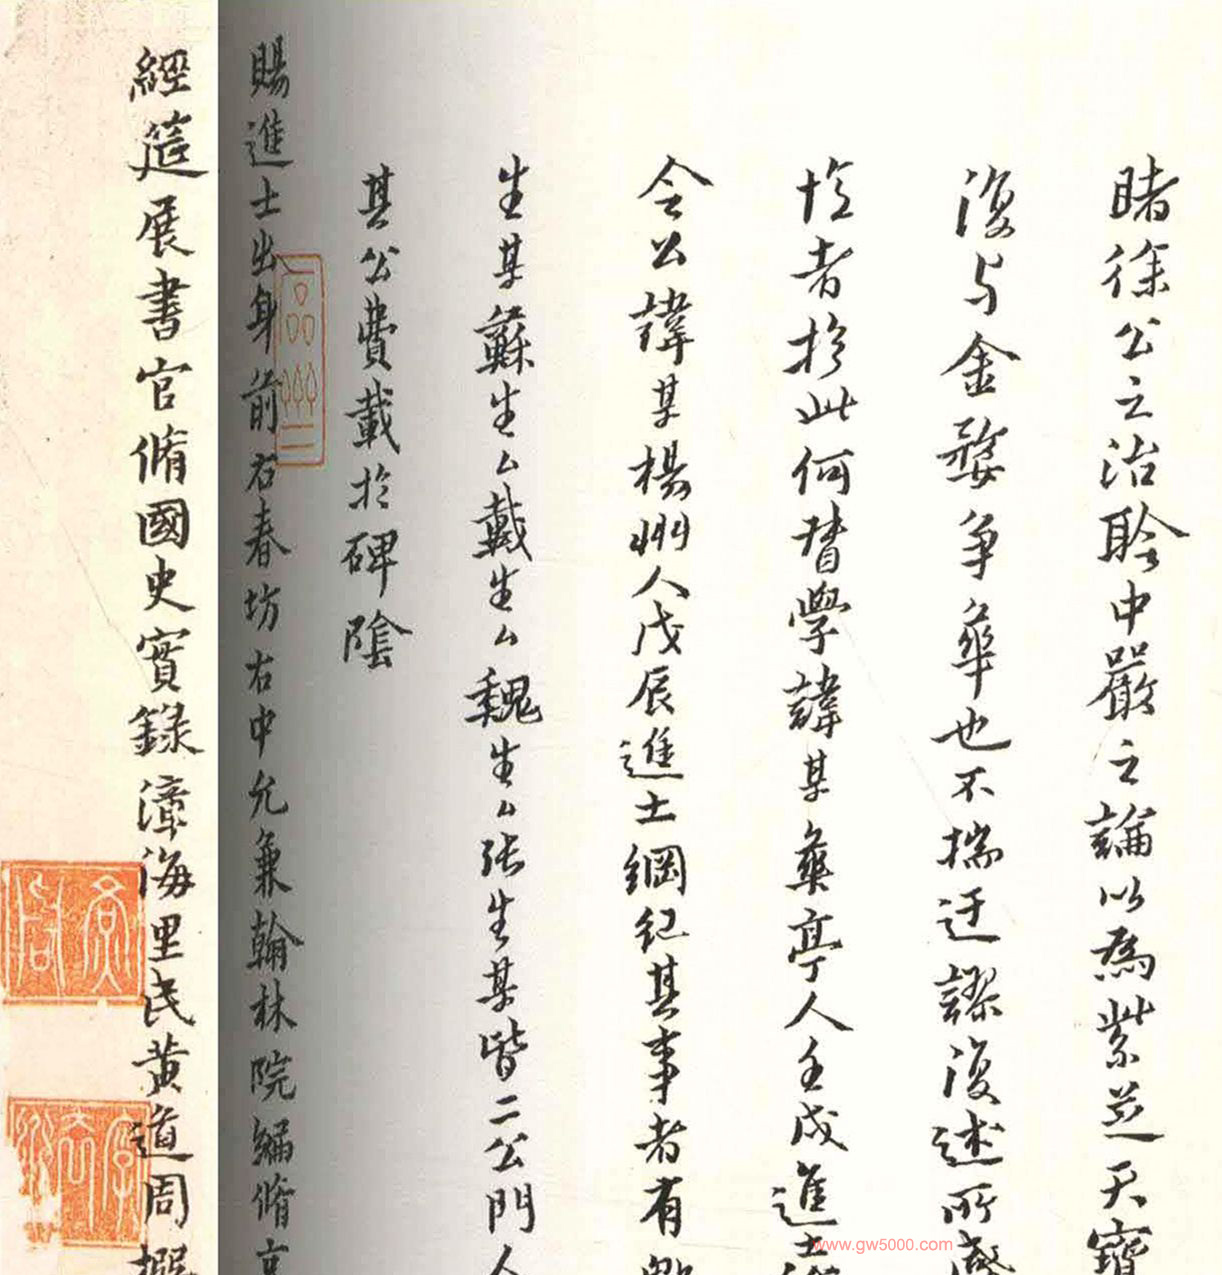 睹徐公之治聆中嚴之論以為紫芝天寶
復与金婺爭華也不揣迂謬復述所
者於此何督學諱某華亭人壬戌進士
令公諱某楊州人戊辰進士綱紀其事者有
生某蘇生厶戴生厶魏生厶張生某皆二公門人
其公費載於碑陰
賜進士出身前右春坊右中允兼翰林院編脩
經筵展書官脩國史實錄漳海里民黃道周撰
www.gw5000.com